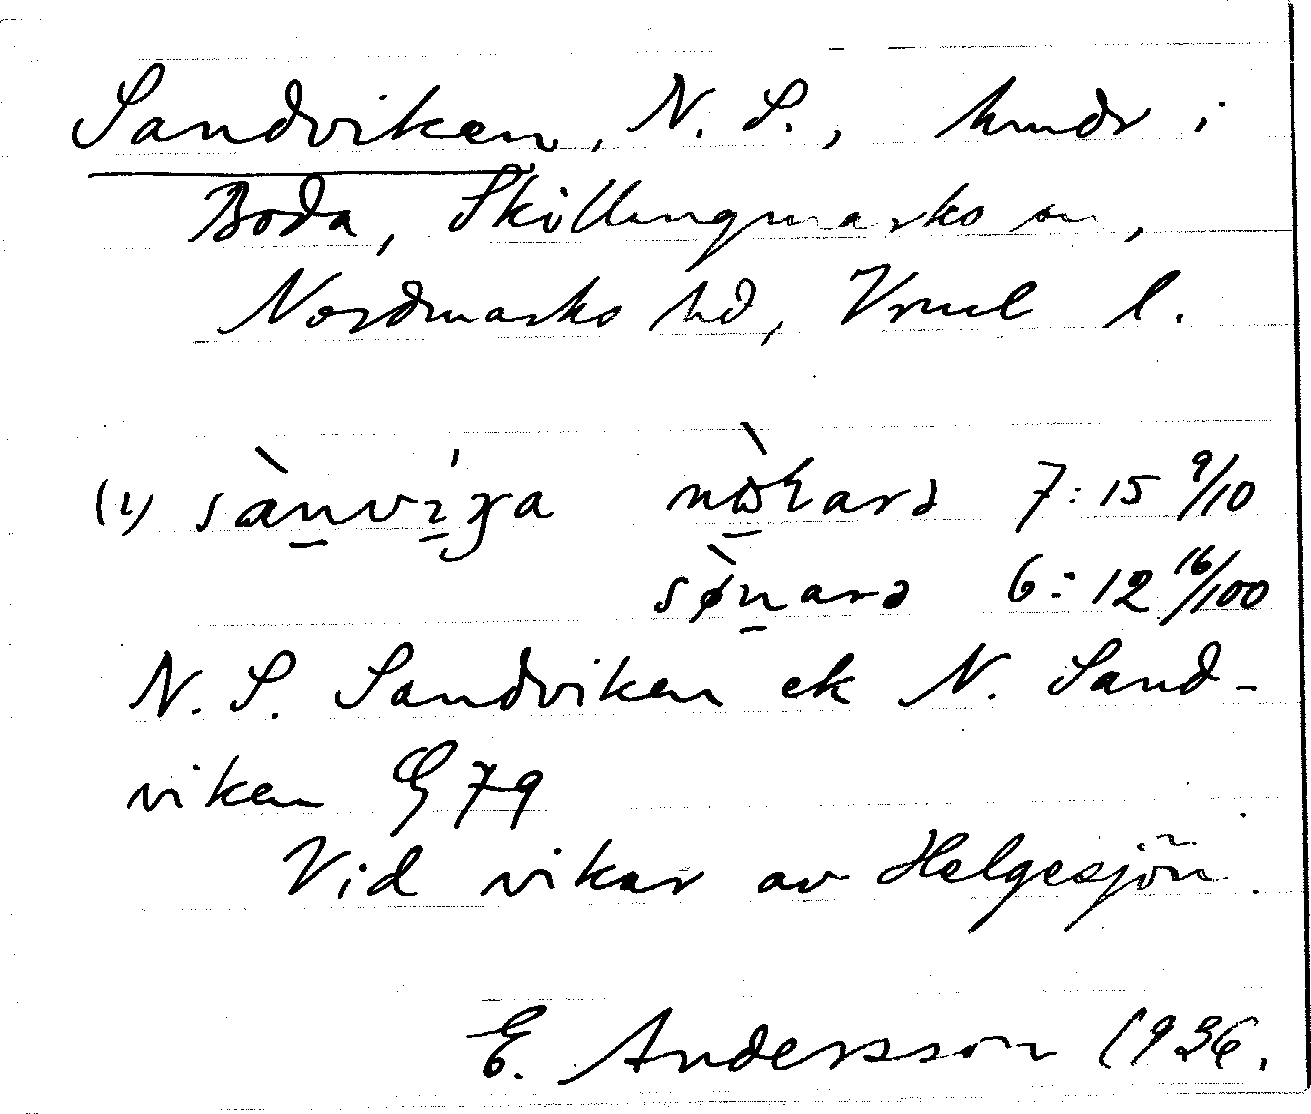 Sandviken, N. S., hmdr i
Boda, Skillingmarks sn,
Nordmarks hd, Vrml l.
(i) sànvı́ga nòḷarə 7:15 9/10
sø̀narə 6:12 16/100
N. S. Sandviken ek N. Sand-
viken G 79
Vid vikar av Helgesjön.
E. Andersson 1936.